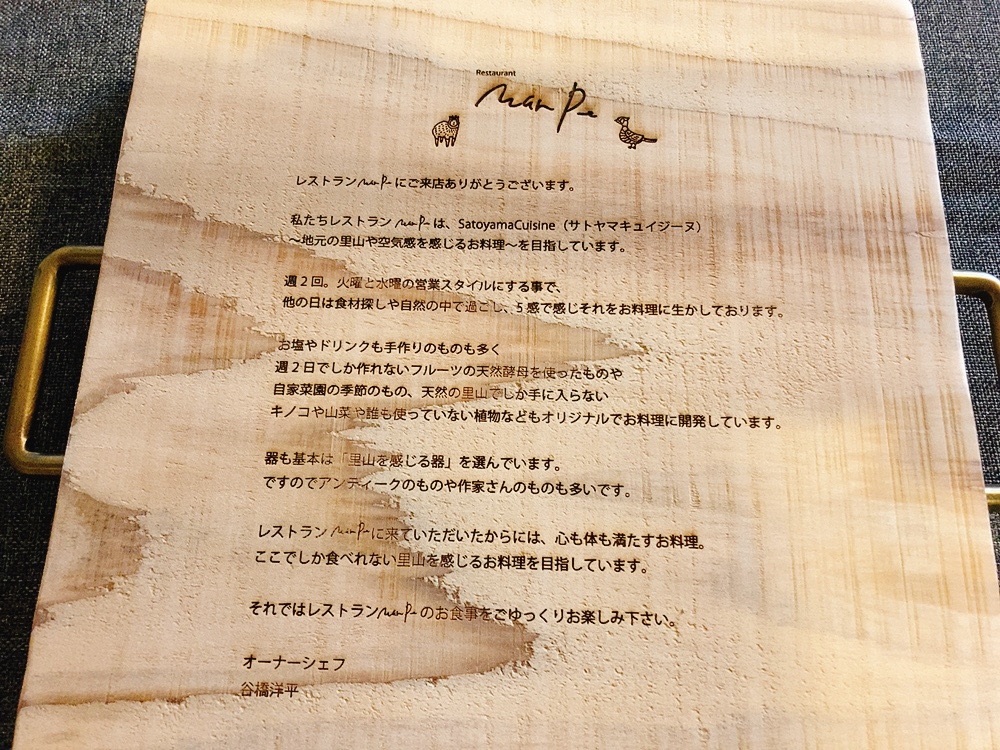 Restaurant
レストランにご来店ありがとうございます。
私たちレストランは、SatoyamaCuisine（サトヤマキュイジーヌ）
～地元の里山や空気感を感じるお料理～を目指しています。
週2回。火曜と水曜の営業スタイルにする事で、
他の日は食材探しや自然の中で過ごし、5感で感じそれをお料理に生かしております。
お塩やドリンクも手作りのものも多く
週2日でしか作れないフルーツの天然酵母を使ったものや
自家菜園の季節のもの、天然の里山でしか手に入らない
キノコや山菜や誰も使っていない植物などもオリジナルでお料理に開発しています。
器も基本は「里山を感じる器」を選んでいます。
ですのでアンティークのものや作家さんのものも多いです。
レストランに来ていただいたからには、心も体も満たすお料理。
ここでしか食べれない里山を感じるお料理を目指しています。
それではレストランのお食事をごゆっくりお楽しみ下さい。
オーナーシェフ
谷橋洋平